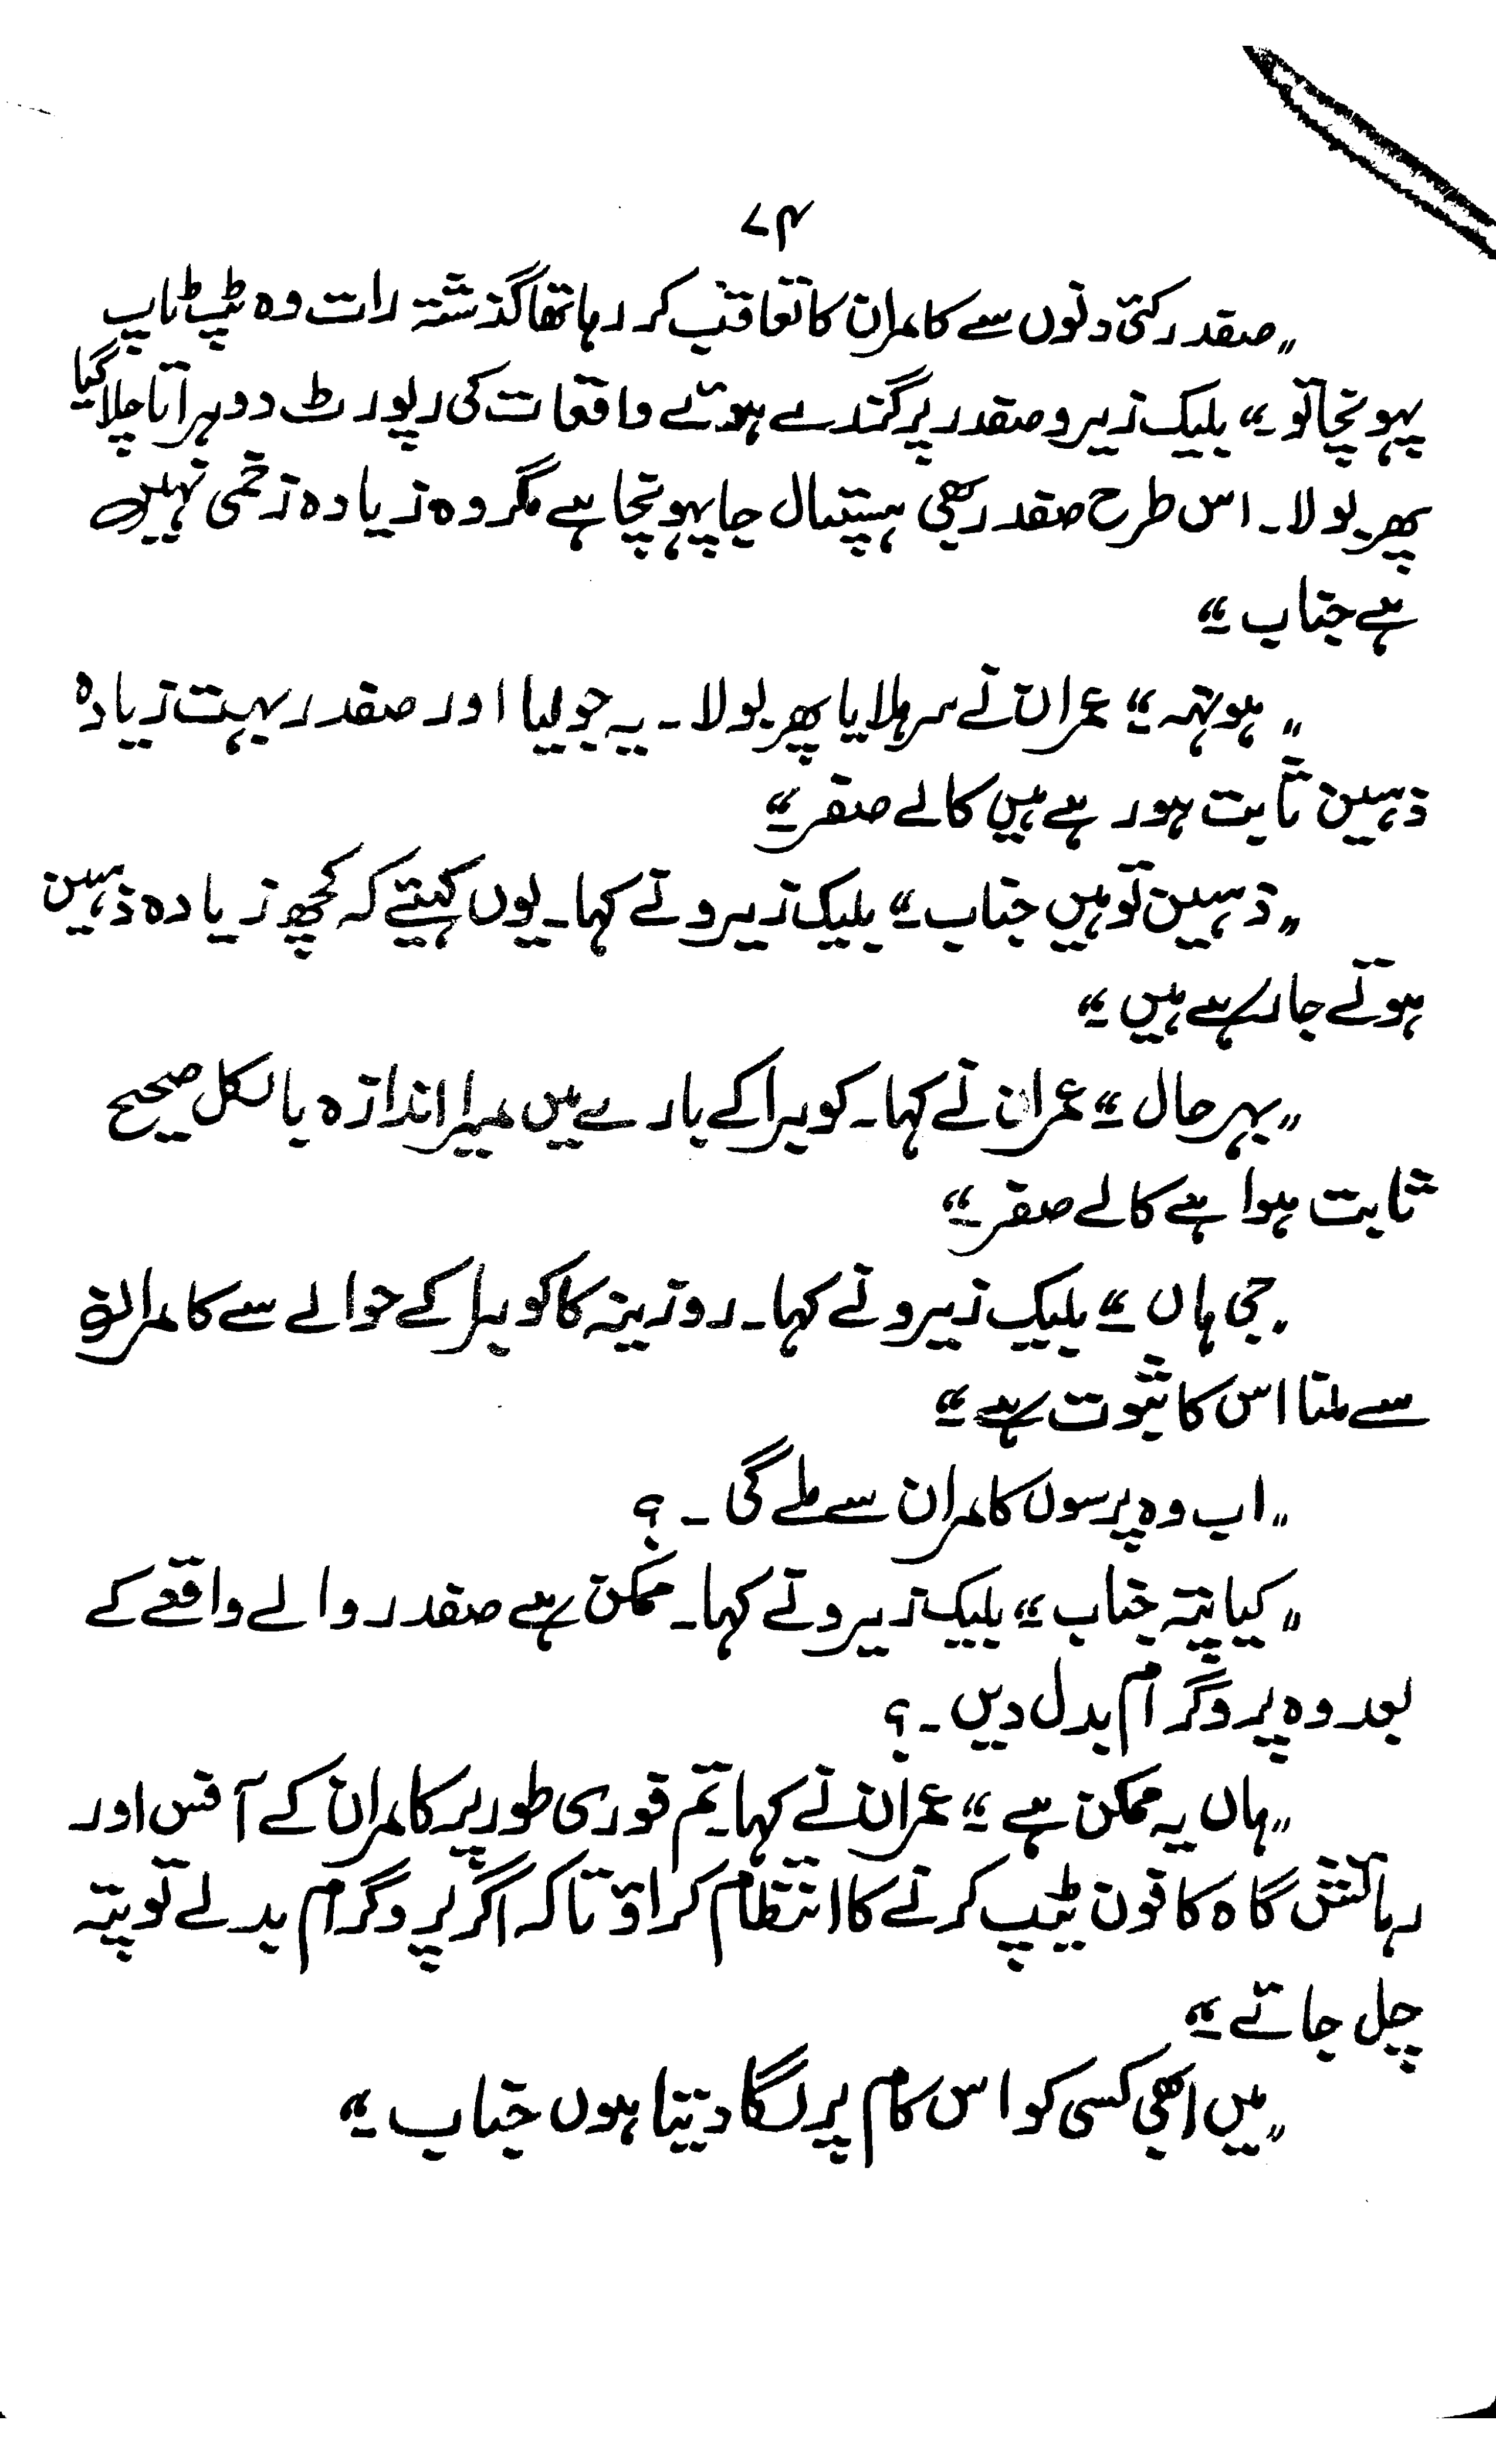 ۷۴
"صفدر کئی دنوں سے کامران کا تعاقب کر رہا تھا گذشتہ رات وہ ٹپ ٹاپ
پہونچا تو۔" بلیک زیرو صفدر پر گزرے ہوئے واقعات کی رپورٹ دوہراتا چلا گیا
پھر بولا۔ اس طرح صفدر بھی ہسپتال جا پہونچا ہے مگر وہ زیادہ زخمی نہیں
ہے جناب۔"
"ہونہہ۔" عمران نے سر ہلایا پھر بولا۔ یہ جولیا اور صفدر بہت زیادہ
ذہین ثابت ہو رہے ہیں کالے صفر۔"
"ذہین تو ہیں جناب۔" بلیک زیرو نے کہا۔ یوں کہیئے کہ کچھ زیادہ ذہین
ہوتے جا رہے ہیں۔"
"بہرحال۔" عمران نے کہا۔ کوبرا کے بارے میں میرا اندازہ بالکل صحیح
ثابت ہوا ہے کالے صفر۔"
"جی ہاں۔" بلیک زیرو نے کہا۔ روزینہ کا کوبرا کے حوالے سے کامران
سے ملنا اس کا ثبوت ہے۔"
"اب وہ پرسوں کامران سے ملے گی۔؟
"کیا پتہ جناب۔" بلیک زیرو نے کہا۔ ممکن ہے صفدر والے واقعے کے
بعد وہ پروگرام بدل دیں۔؟
"ہاں یہ ممکن ہے۔" عمران نے کہا۔ تم فوری طور پر کامران کے آفس اور
رہائش گاہ کا فون ٹیپ کرنے کا انتظام کراؤ تاکہ اگر پروگرام بدلے تو پتہ
چل جائے۔"
"میں ابھی کسی کو اس کام پر لگا دیتا ہوں جناب۔"